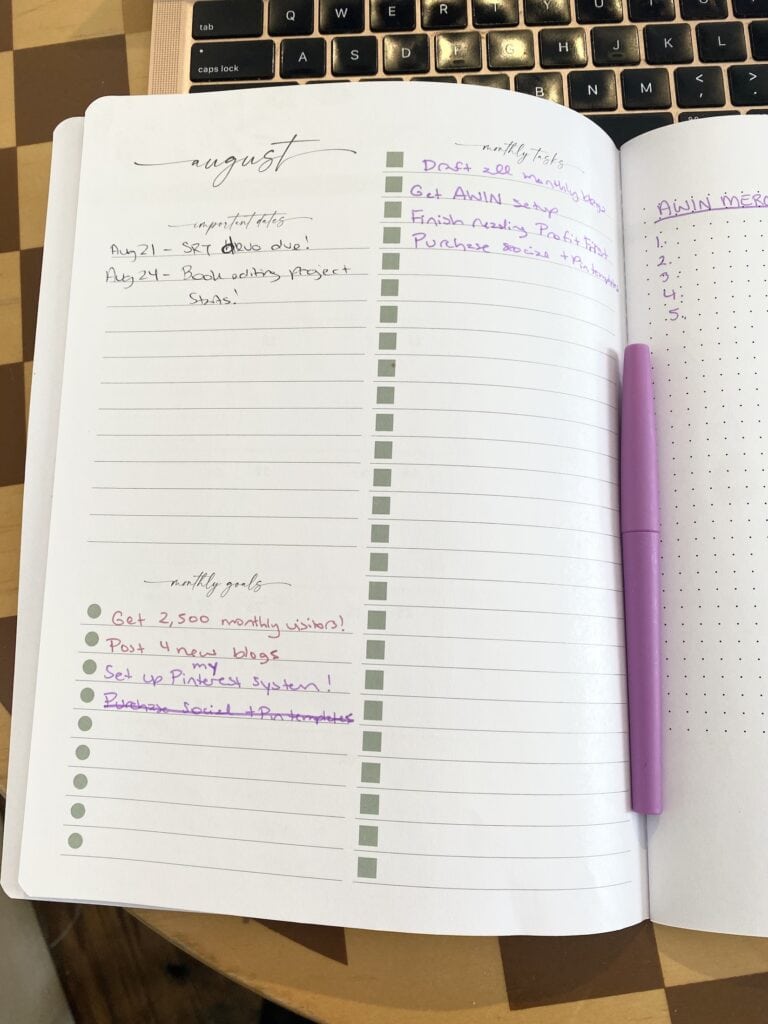 tab Q W E R T Y U
caps lock A S D F G H J K L
B N M < , > .
august
important dates
Aug 21 - SRT due!
Aug 24 - Book editing project
Starts!
monthly goals
Get 2,500 monthly visitors!
Post 4 new blogs
my
Set up Pinterest system!
Purchase social + Pin templates
monthly tasks
Draft all monthly blogs
Get AWIN setup
Finish reading Profit First
Purchase social + Pin templates
AWIN MERC
1.
2.
3
4.
5.